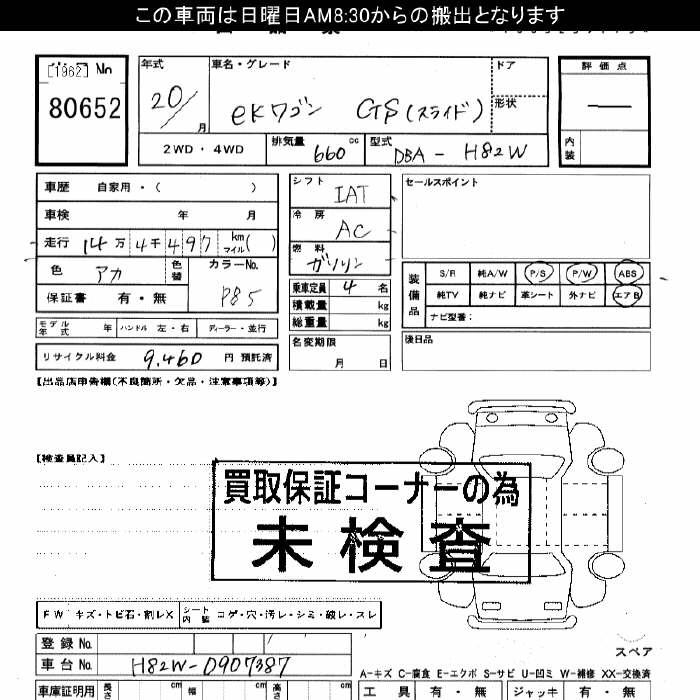 この車両は日曜日AM8:30からの搬出となります
[1962] No
80652
年式
20/
月
車名・グレード
eKワゴン GS(スライド)
ドア
形状
評価点
内装
2WD・4WD
排気量
660 cc
型式
DBA-H82W
車歴 自家用・( )
車検 年 月
走行 14万4千497 km マイル( )
色 アカ
色替
カラーNo.
P85
保証書 有・無
モデル年式 年 ハンドル 左・右 ディーラー・並行
リサイクル料金 9,460 円 預託済
シフト IAT
冷房 AC
燃料 ガソリン
乗車定員 4 名
積載量 kg
総重量 kg
名変期限
月 日
セールスポイント
装備品
S/R 純A/W P/S P/W ABS
純TV 純ナビ 革シート 外ナビ エアB
ナビ型番:
後日品
【出品店申告欄(不良箇所・欠品・注意事項等)】
【検査員記入】
買取保証コーナーの為
未検査
FW キズ・トビ石・割レX シート内装 コゲ・穴・汚レ・シミ・破レ・スレ
登録No.
車台No. H82W-0907387
車庫証明用 長さ cm 幅 cm 高さ cm
スペア
A-キズ C-腐食 E-エクボ S-サビ U-凹ミ W-補修 XX-交換済
工具 有・無 ジャッキ 有・無